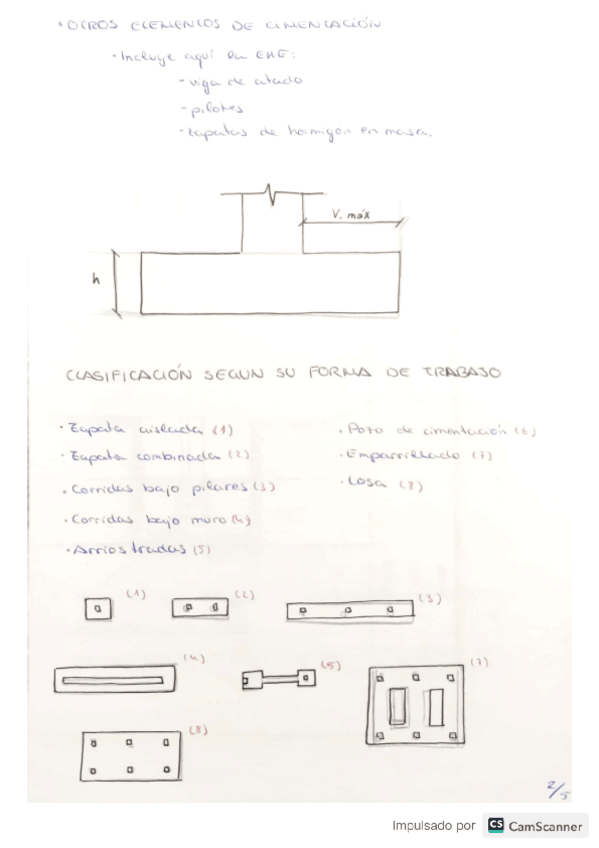 • OTROS ELEMENTOS DE CIMENTACIÓN
• Incluye aquí la EHE:
- viga de atado
- pilotes
- zapatas de hormigón en masa.
V. máx
h
CLASIFICACIÓN SEGUN SU FORMA DE TRABAJO
• Zapata aislada (1)
• Zapata combinada (2)
• Corridas bajo pilares (3)
• Corridas bajo muro (4)
• Arriostradas (5)
• Pozo de cimentación (6)
• Emparrillado (7)
• Losa (8)
(1)
(2)
(3)
(4)
(5)
(7)
(8)
2/5
Impulsado por CS CamScanner